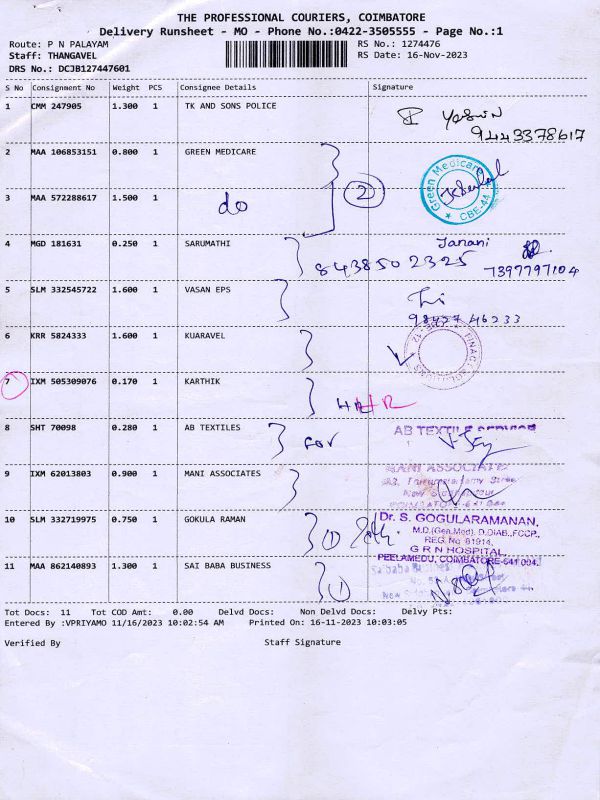 THE PROFESSIONAL COURIERS, COIMBATORE
Delivery Runsheet - MO - Phone No.:0422-3505555 - Page No.:1
Route: P N PALAYAM
RS No.: 1274476
Staff: THANGAVEL
RS Date: 16-Nov-2023
DRS No.: DCJB127447601
S No Consignment No Weight PCS Consignee Details Signature
1 CMM 247905 1.300 1 TK AND SONS POLICE
9443378617
2 MAA 106853151 0.800 1 GREEN MEDICARE
Green Medicare
CBE-44
3 MAA 572288617 1.500 1 do 2
4 MGD 181631 0.250 1 SARUMATHI Janani
8438502325 7397797104
5 SLM 332545722 1.600 1 VASAN EPS
6 KRR 5824333 1.600 1 KUARAVEL
7 IXM 505309076 0.170 1 KARTHIK
HR
8 SHT 70098 0.280 1 AB TEXTILES For AB TEXTILE SERVICE
9 IXM 62013803 0.900 1 MANI ASSOCIATES MANI ASSOCIATES
10 SLM 332719975 0.750 1 GOKULA RAMAN Dr. S. GOGULARAMANAN,
M.D.(Gen.Med), D.DIAB.,FCCP.,
REG. No: 81914,
G R N HOSPITAL,
PEELAMEDU, COIMBATORE-641 004.
11 MAA 862140893 1.300 1 SAI BABA BUSINESS 1
Tot Docs: 11 Tot COD Amt: 0.00 Delvd Docs: Non Delvd Docs: Delvy Pts:
Entered By :VPRIYAMO 11/16/2023 10:02:54 AM Printed On: 16-11-2023 10:03:05
Verified By Staff Signature